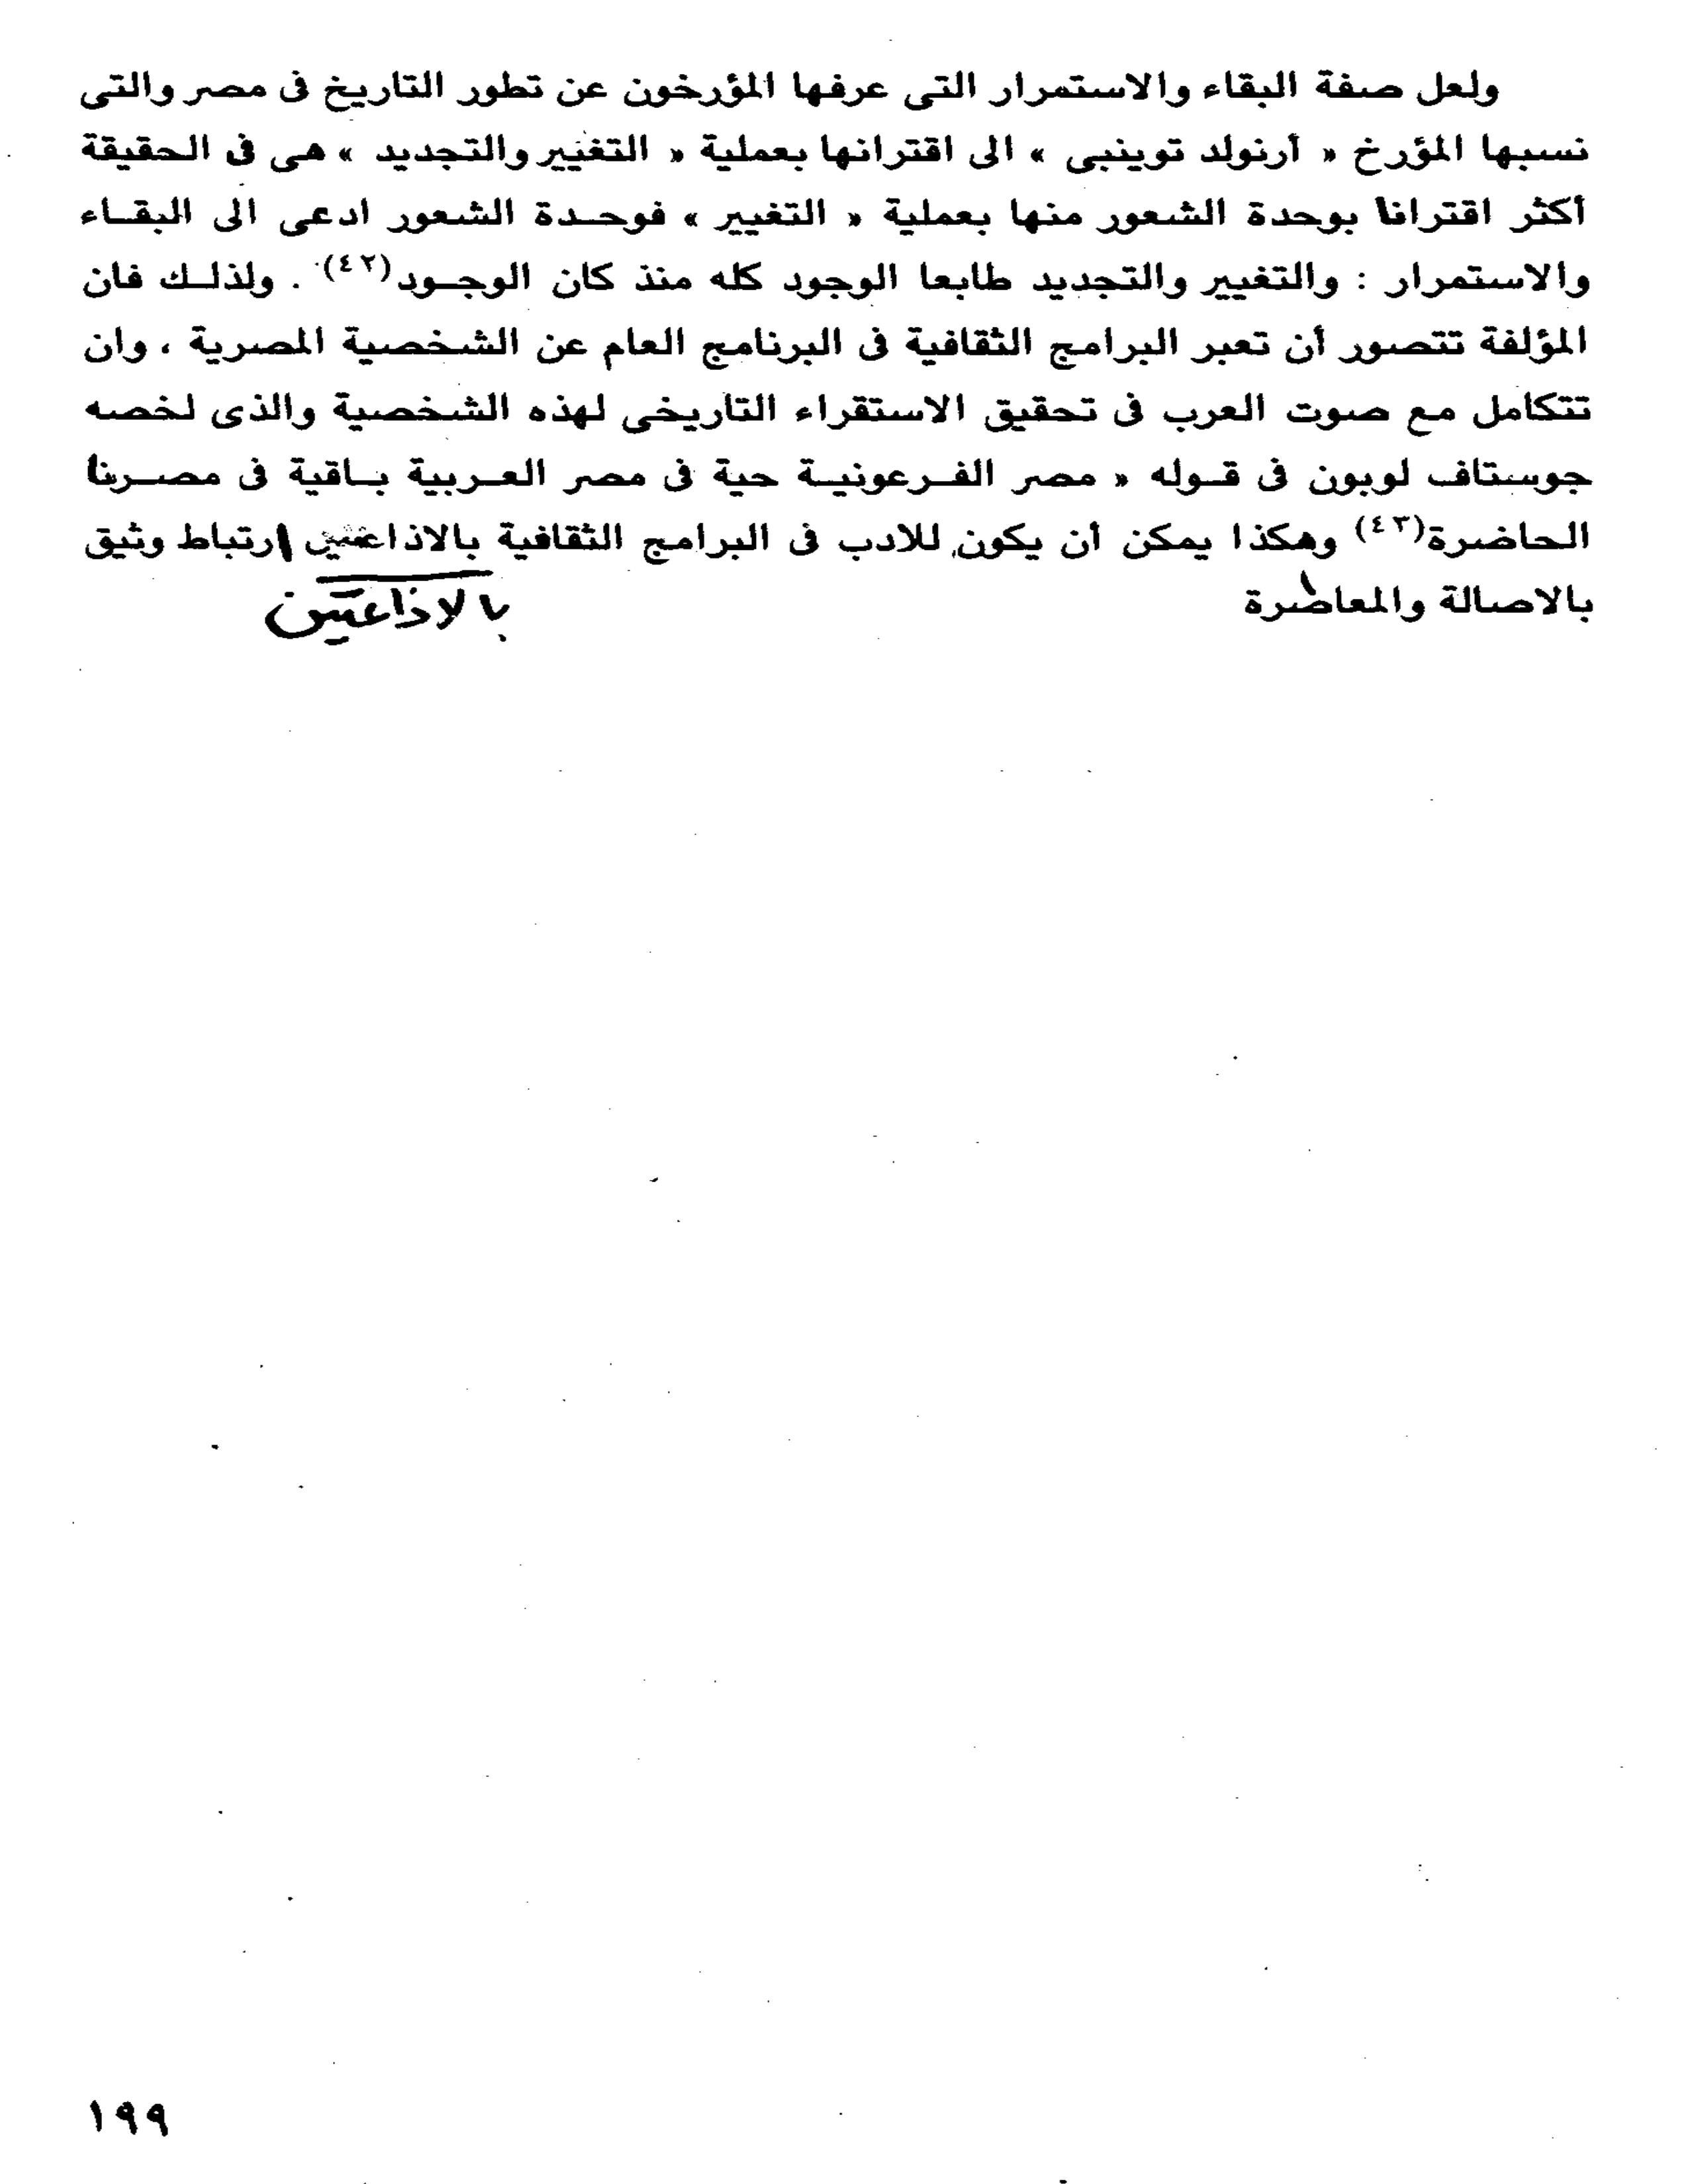 ولعل صفة البقاء والاستمرار التى عرفها المؤرخون عن تطور التاريخ فى مصر والتى
نسبها المؤرخ « أرنولد توينبى » الى اقترانها بعملية « التغيير والتجديد » هى فى الحقيقة
أكثر اقترانا بوحدة الشعور منها بعملية « التغيير » فوحدة الشعور ادعى الى البقاء
والاستمرار : والتغيير والتجديد طابعا الوجود كله منذ كان الوجود(٤٢) . ولذلك فان
المؤلفة تتصور أن تعبر البرامج الثقافية فى البرنامج العام عن الشخصية المصرية ، وان
تتكامل مع صوت العرب فى تحقيق الاستقراء التاريخى لهذه الشخصية والذى لخصه
جوستاف لوبون فى قوله « مصر الفرعونية حية فى مصر العربية باقية فى مصرنا
الحاضرة(٤٣) وهكذا يمكن أن يكون للادب فى البرامج الثقافية بالاذاعتين ارتباط وثيق
بالاصالة والمعاصرة
بالاذاعتين
١٩٩